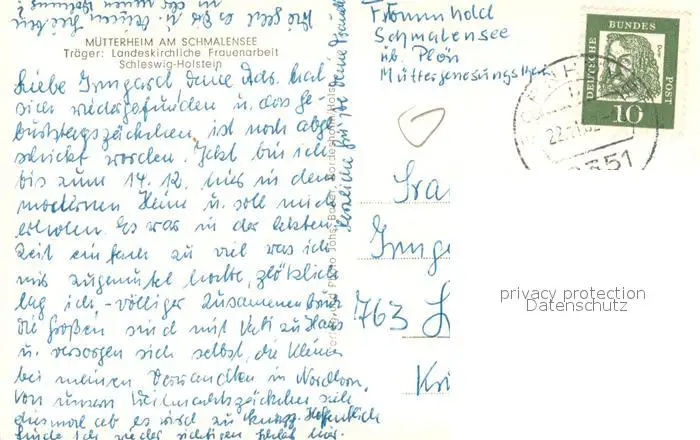 Wie geht es Dir u. deinen Lieben
in der neuen Wohnung?
MÜTTERHEIM AM SCHMALENSEE
Träger: Landeskirchliche Frauenarbeit
Schleswig-Holstein
Liebe Irmgard, deine Adr. hat
sich wiedergefunden u. das Ge-
burtstagszeichen ist noch abge-
schickt worden. Jetzt bin ich
bis zum 14. 12. hier in dem
modernen Heim u. soll mich
erholen. Es war in der letzten
Zeit einfach zu viel was ich
mir zugemutet hatte, plötzlich
lag ich, - völliger Zusammenbruch
die Großen sind mit Vati zu Haus
u. versorgen sich selbst, die Kleinen
bei meinen Verwandten in Nordhorn.
Von unserm Weihnachtszeichen
diesmal ab es wird zu knapp. Hoffentlich
finde ich wieder richtigen
Herzliche Grüße deine
Frommhold
Schmalensee
üb. Plön
Müttergenesungsheim
DEUTSCHE BUNDESPOST
10
2351
Frau
Irmg
763 L
Kri
privacy protection
Datenschutz